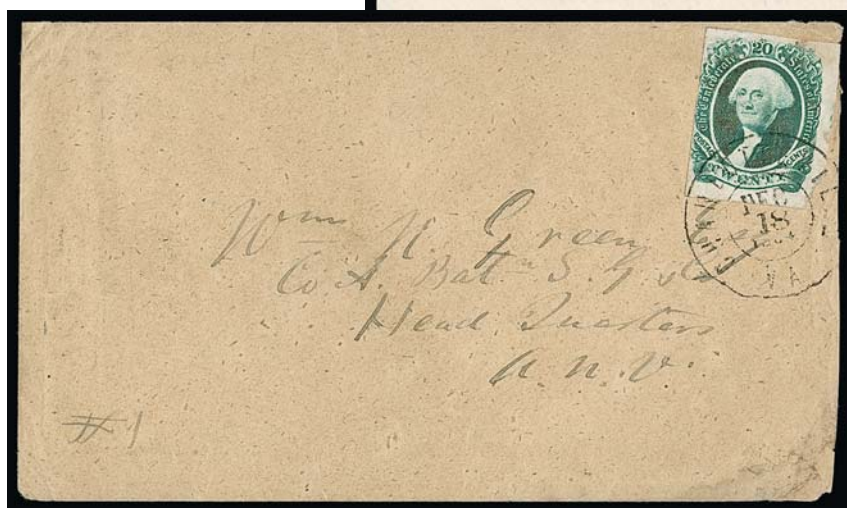 20
The Confederate States of America
POSTAGE CENTS
TWENTY
DEC
18
VA
Wm H. Green
Co A. Batt
Head Quarters
A. N. V.
#1